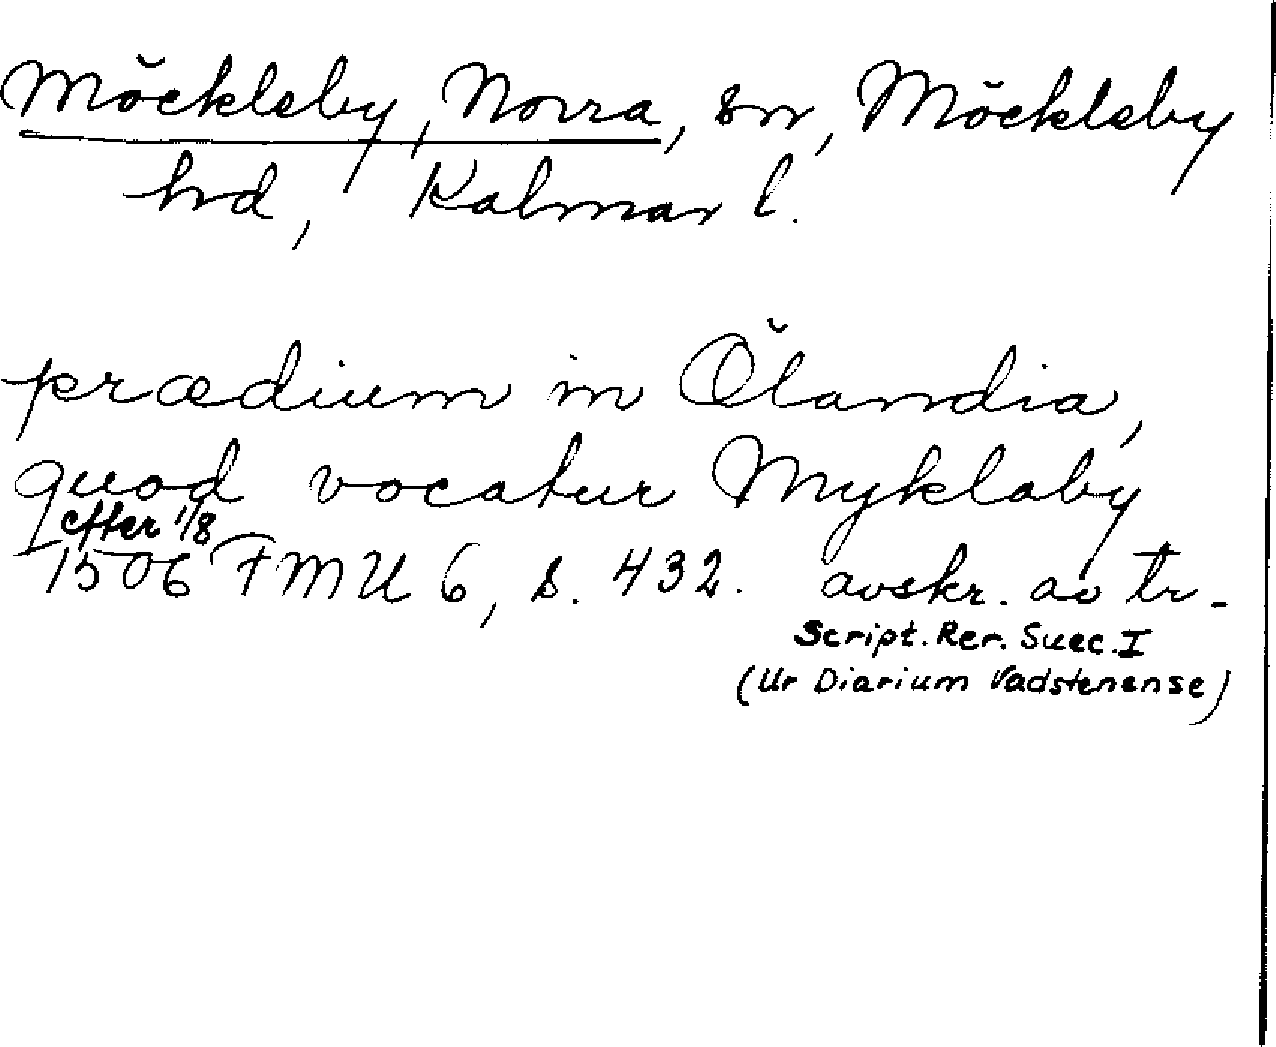 Möckleby, Norra, sn, Möckleby
hd, Kalmar l.
prædium in Ölandia,
quod vocatur Myklaby
efter 1/8
1506 FMU 6, s. 432. avskr. av tr.
Script. Rer. Suec. I
(Ur Diarium Vadstenense)